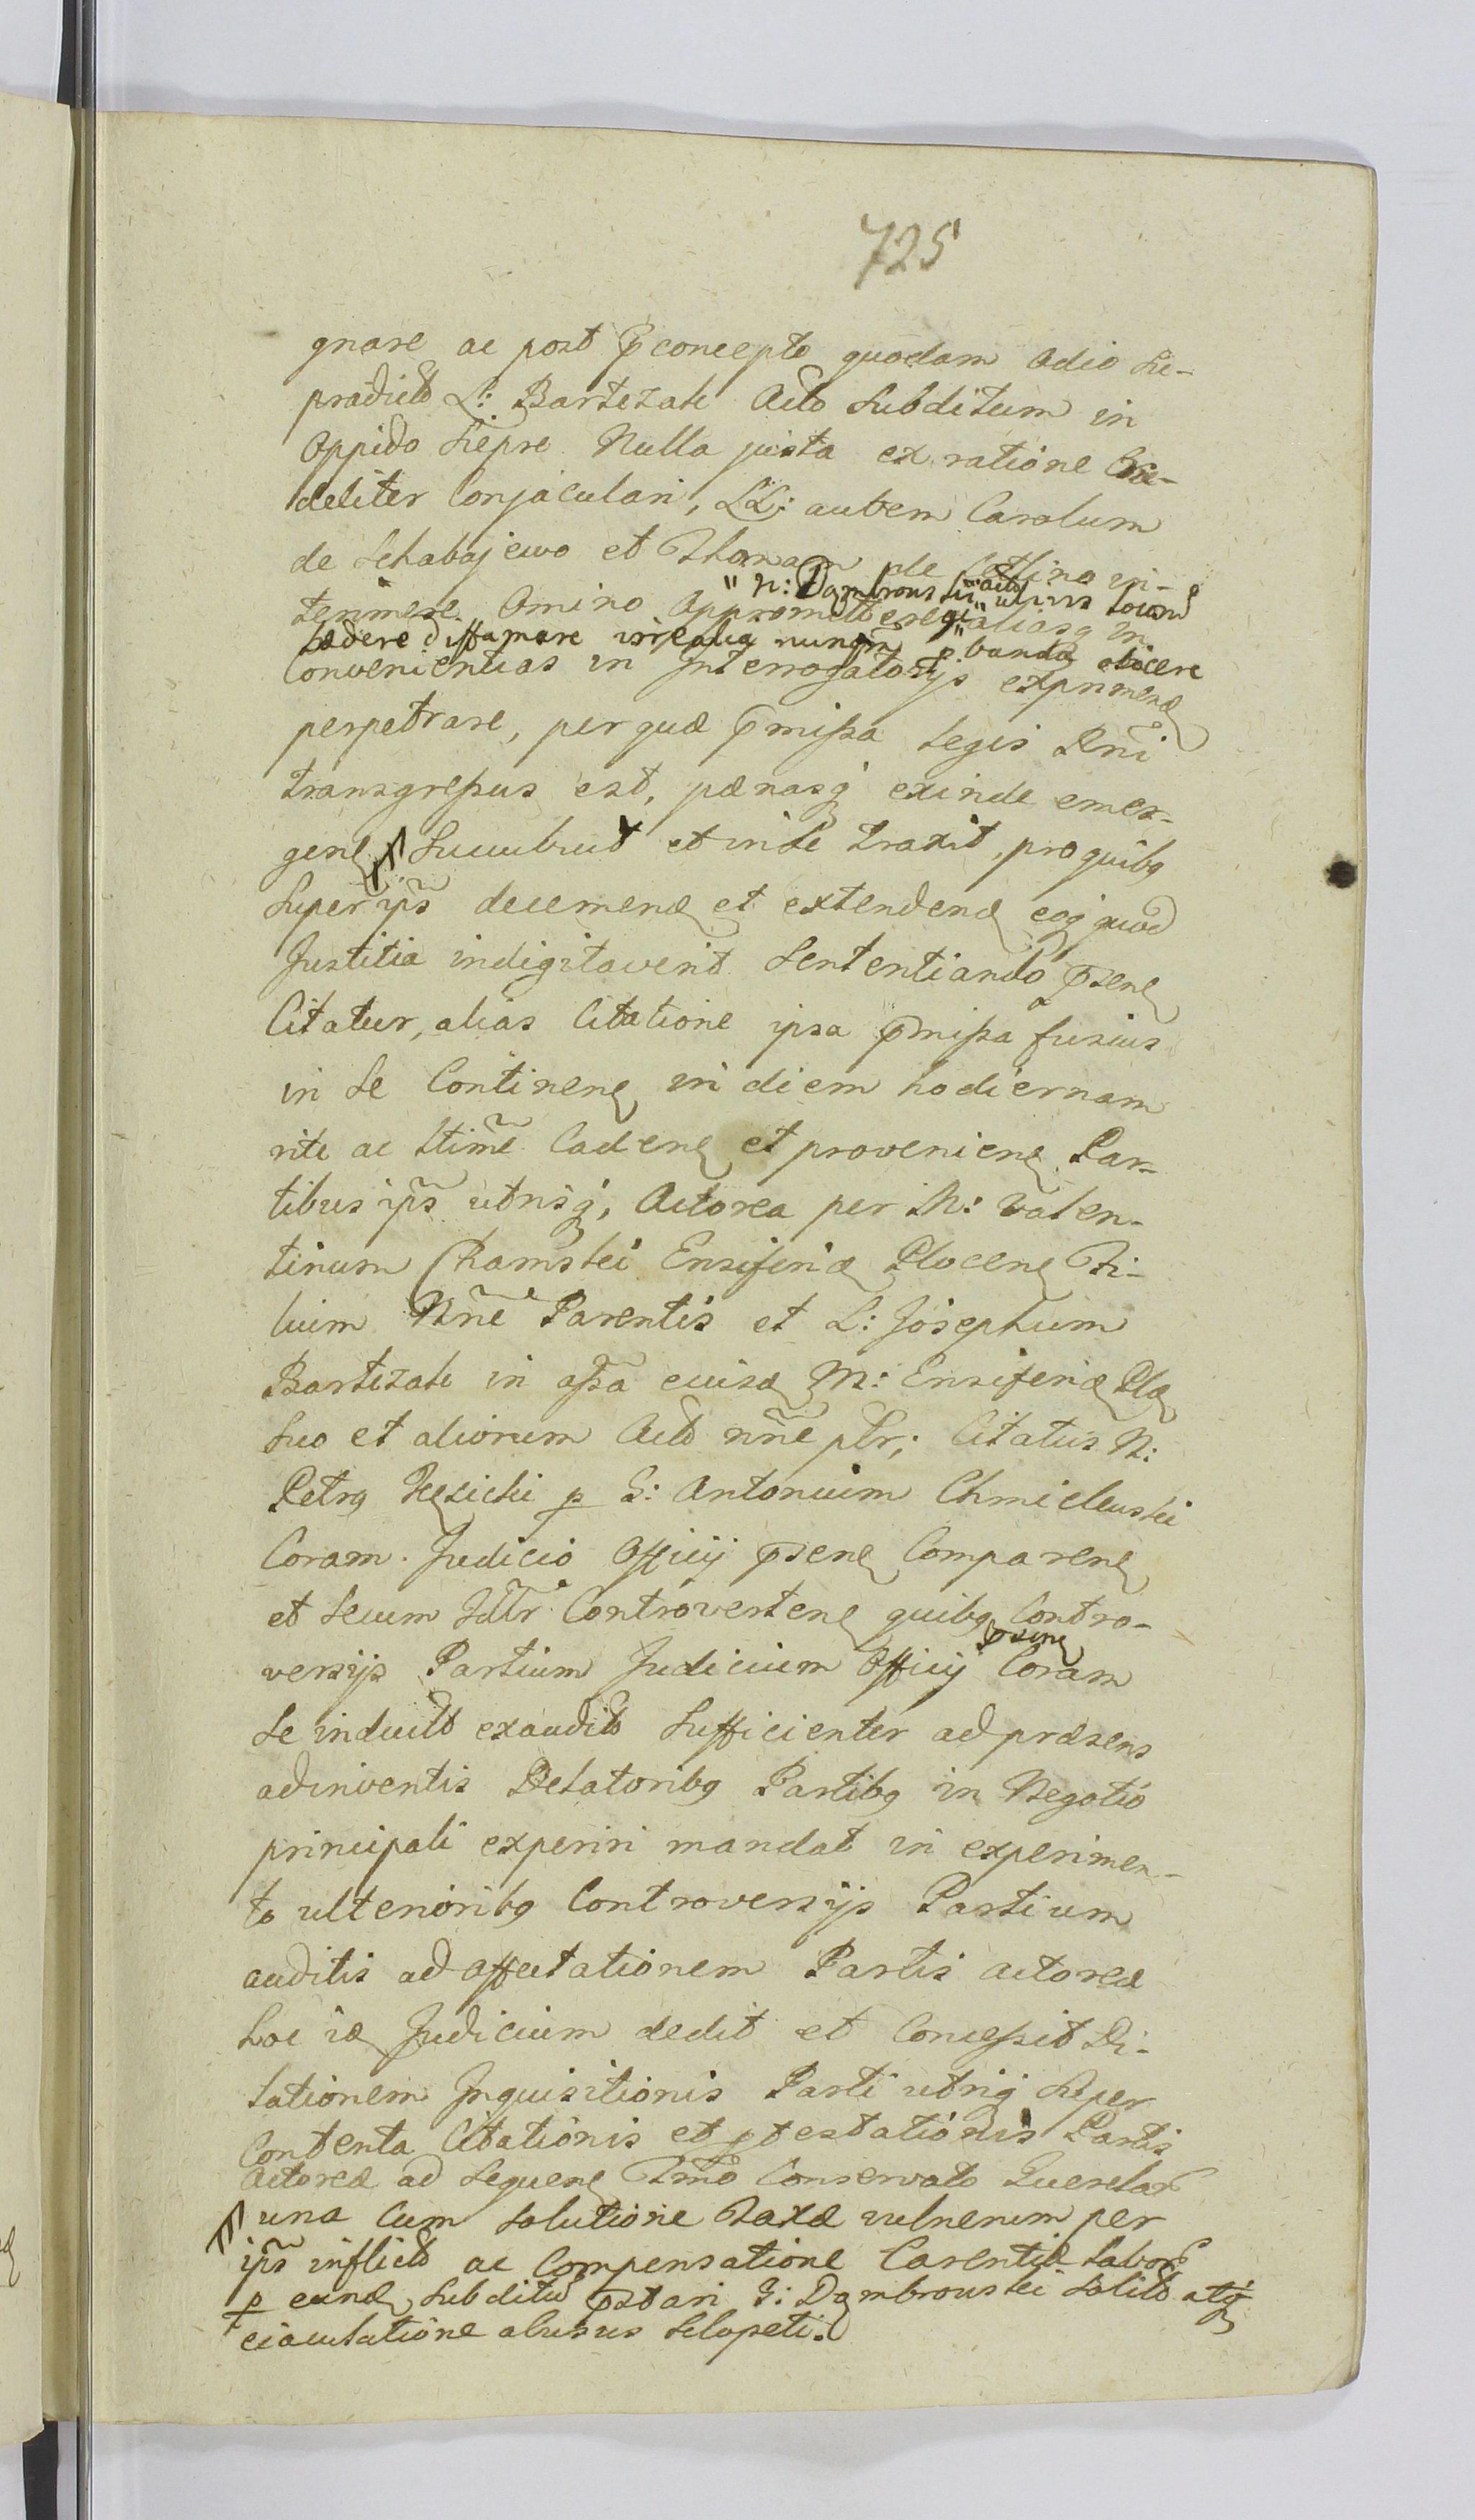 725
gnare ac post p̄concepto quodam odio Su-
pradicto L: Bartezak Acto Subditum in
Oppido Siepre Nulla justa ex ratione Cru-
deliter Conjaculari, LL: autem Carolum
de Schabajewo et Thomam de in-
" N: Dąmbrowskii acto
terimere Omino appromittere aliasq in
lædere diffamare irrealia nunqm p̄banda obicere
Convenientias in Interrogatorijs exprimend
perpetrare, per quæ p̄missa Legis Rni
transgressus est, pænasq exinde emer-
gen Succubuit et in se traxit, pro quibq
Super ip̃s decernend et extendend eoq quod
Justitia indigitaverit Sententiando p̄sen
Citatur, alias Citatione ipsa p̄missa fusius
in se Continen in diem hodiernam
rite ac ltime Caden et provenien Par-
tibus ip̃s utrisq, Actorea per M: Valen-
tinum Chamski Ensiferid Plocen Fi-
lium Nñe Parentis et L: Josephum
Bartezak in assa eiusd M: Ensiferid Plo
Suo et aliorum Acto nñe pltr; Citatus N:
Petrq p G: Antonium Chmielewski
Coram Judicio Officij p̄sen Comparen
et Secum Idtr Controverten quibq Contro-
p̄sen
versijs Partium Judicium Officij Coram
Se inducto exaudito Sufficienter ad præsens
adinventis Delatoribq Partibq in Negotio
principali experiri mandat in experimen-
to ulterioribq Controversijs Partium
auditis ad affectationem Partis actoreæ
hoc id Judicium dedit et Concessit Di-
lationem Inquisitionis Parti utriq Super
Contenta Citationis et ptestationis Partis
Actoreæ ad Sequen Tm̃o Conservato Querelar
una Cum Solutione Taxæ vulnerum per
ip̃s inflicto ac Compensatione Carentiæ labor
p eund Subditu p̄stari G: Dąmbrowski Solito atq
eiaculatione abusus Sclopeti.